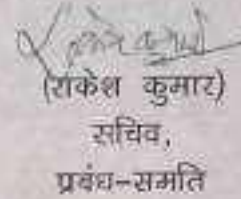 (राकेश कुमार)
सचिव,
प्रबंध-समति